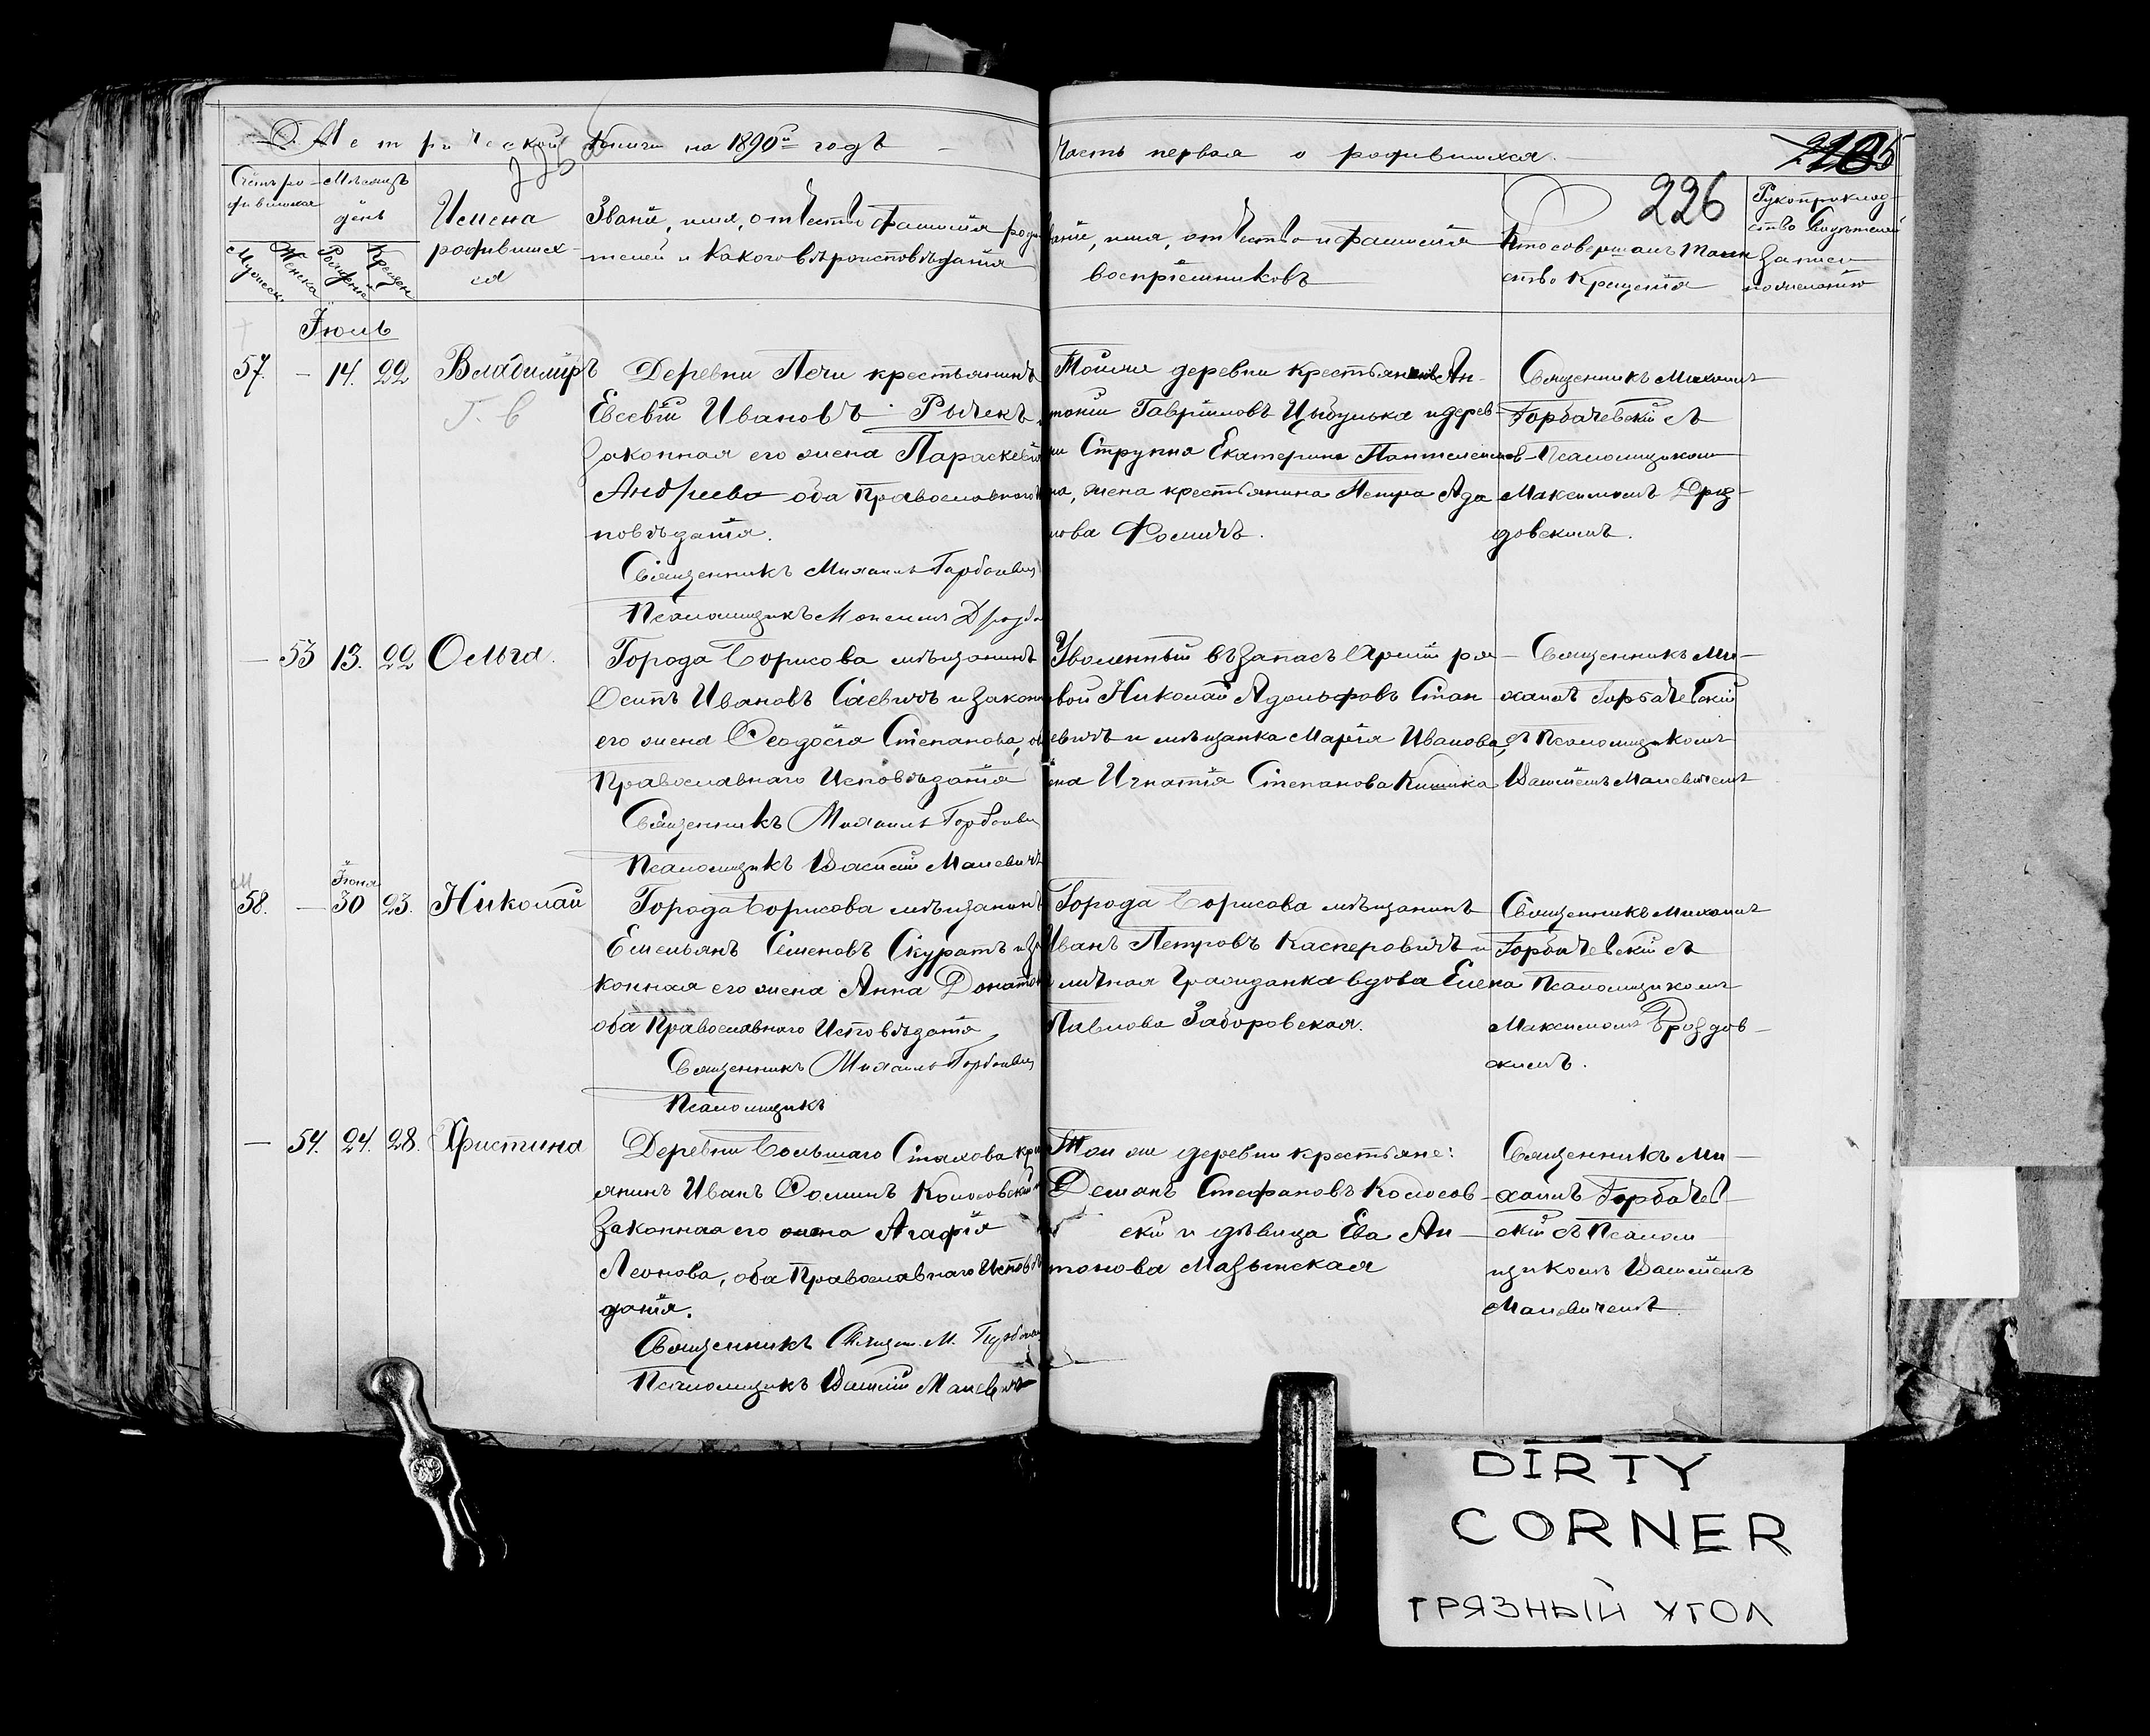 Метрической книги на 1890й годъ
Часть первая о родившихся.
226
Счетъ ро-
дившихся
Мѣсяцъ
день
Мужеск.
Женска
Рожденій
Крещен
Имена
родивших-
ся
Званіе, имя, отчество фамилія роди-
телей и какого вѣроисповѣданія
Званіе, имя, отчество и фамилія
воспріемниковъ
Кто совершалъ Таин
ство Крещенія
Рукоприклад-
ство свидѣтелей
записи
по желанію
Іюль
57. — 14. 22 Владиміръ
Деревни Печи крестьянинъ
Евсевій Ивановъ Рычекъ
законная его жена Параскева
Андреева оба Православнаго
повѣданія.
Священникъ Михаилъ Горбачевск
Псаломщикъ Максимъ Дрозд
Тойже деревни крестьянинъ Ан-
тоній Гавріиловъ Цыбулька и дерев-
ни Струпня Екатерина Пантелеимов-
на, жена крестьянина Петра Ада
мова Фомичъ.
Священникъ Михаилъ
Горбачевскій съ
Псаломщикомъ
Максимомъ Дроз-
довскимъ.
— 53 13. 22 Ольга.
Города Борисова мѣщанинъ
Осипъ Ивановъ Саевичъ и закон
его жена Ѳеодосія Степанова, об
Православнаго Исповѣданія
Священникъ Михаилъ Горбачевс
Псаломщикъ Василій Малевичъ
Уволенный въ запасъ Арміи ря-
довой Николай Адольфовъ Стан
евичъ и мѣщанка Марія Иванова,
жена Игнатія Степанова Кишка
Священникъ Ми-
хаилъ Горбачевскій
съ Псаломщикомъ
Василіемъ Малевичемъ
58. — Іюня 30 23. Николай
Города Борисова мѣщанинъ
Емельянъ Семеновъ Скуратъ и за
конная его жена Анна Донатов
оба Православнаго Исповѣданія
Священникъ Михаилъ Горбачевс
Псаломщикъ
Города Борисова мѣщанинъ
Иванъ Петровъ Касперовичъ и
личная Гражданка вдова Елена
Павлова Заборовская.
Священникъ Михаилъ
Горбачевскій съ
Псаломщикомъ
Максимомъ Дроздов-
скимъ.
— 54. 24. 28. Христина
Деревни Большаго Стахова кре
янинъ Иванъ Ѳоминъ Колосовскій
законная его жена Агафія
Леонова, оба Православнаго Исповѣ
данія.
Священникъ М. Горбачев
Псаломщикъ Василій Малевичъ
Той же деревни крестьяне:
Демьянъ Стефановъ Колосов-
скій и дѣвица Ева Ан-
тонова Мазынская
Священникъ Ми-
хаилъ Горбачев-
скій съ Псалом-
щикомъ Василіемъ
Малевичемъ.
DIRTY
CORNER
ГРЯЗНЫЙ УГОЛ